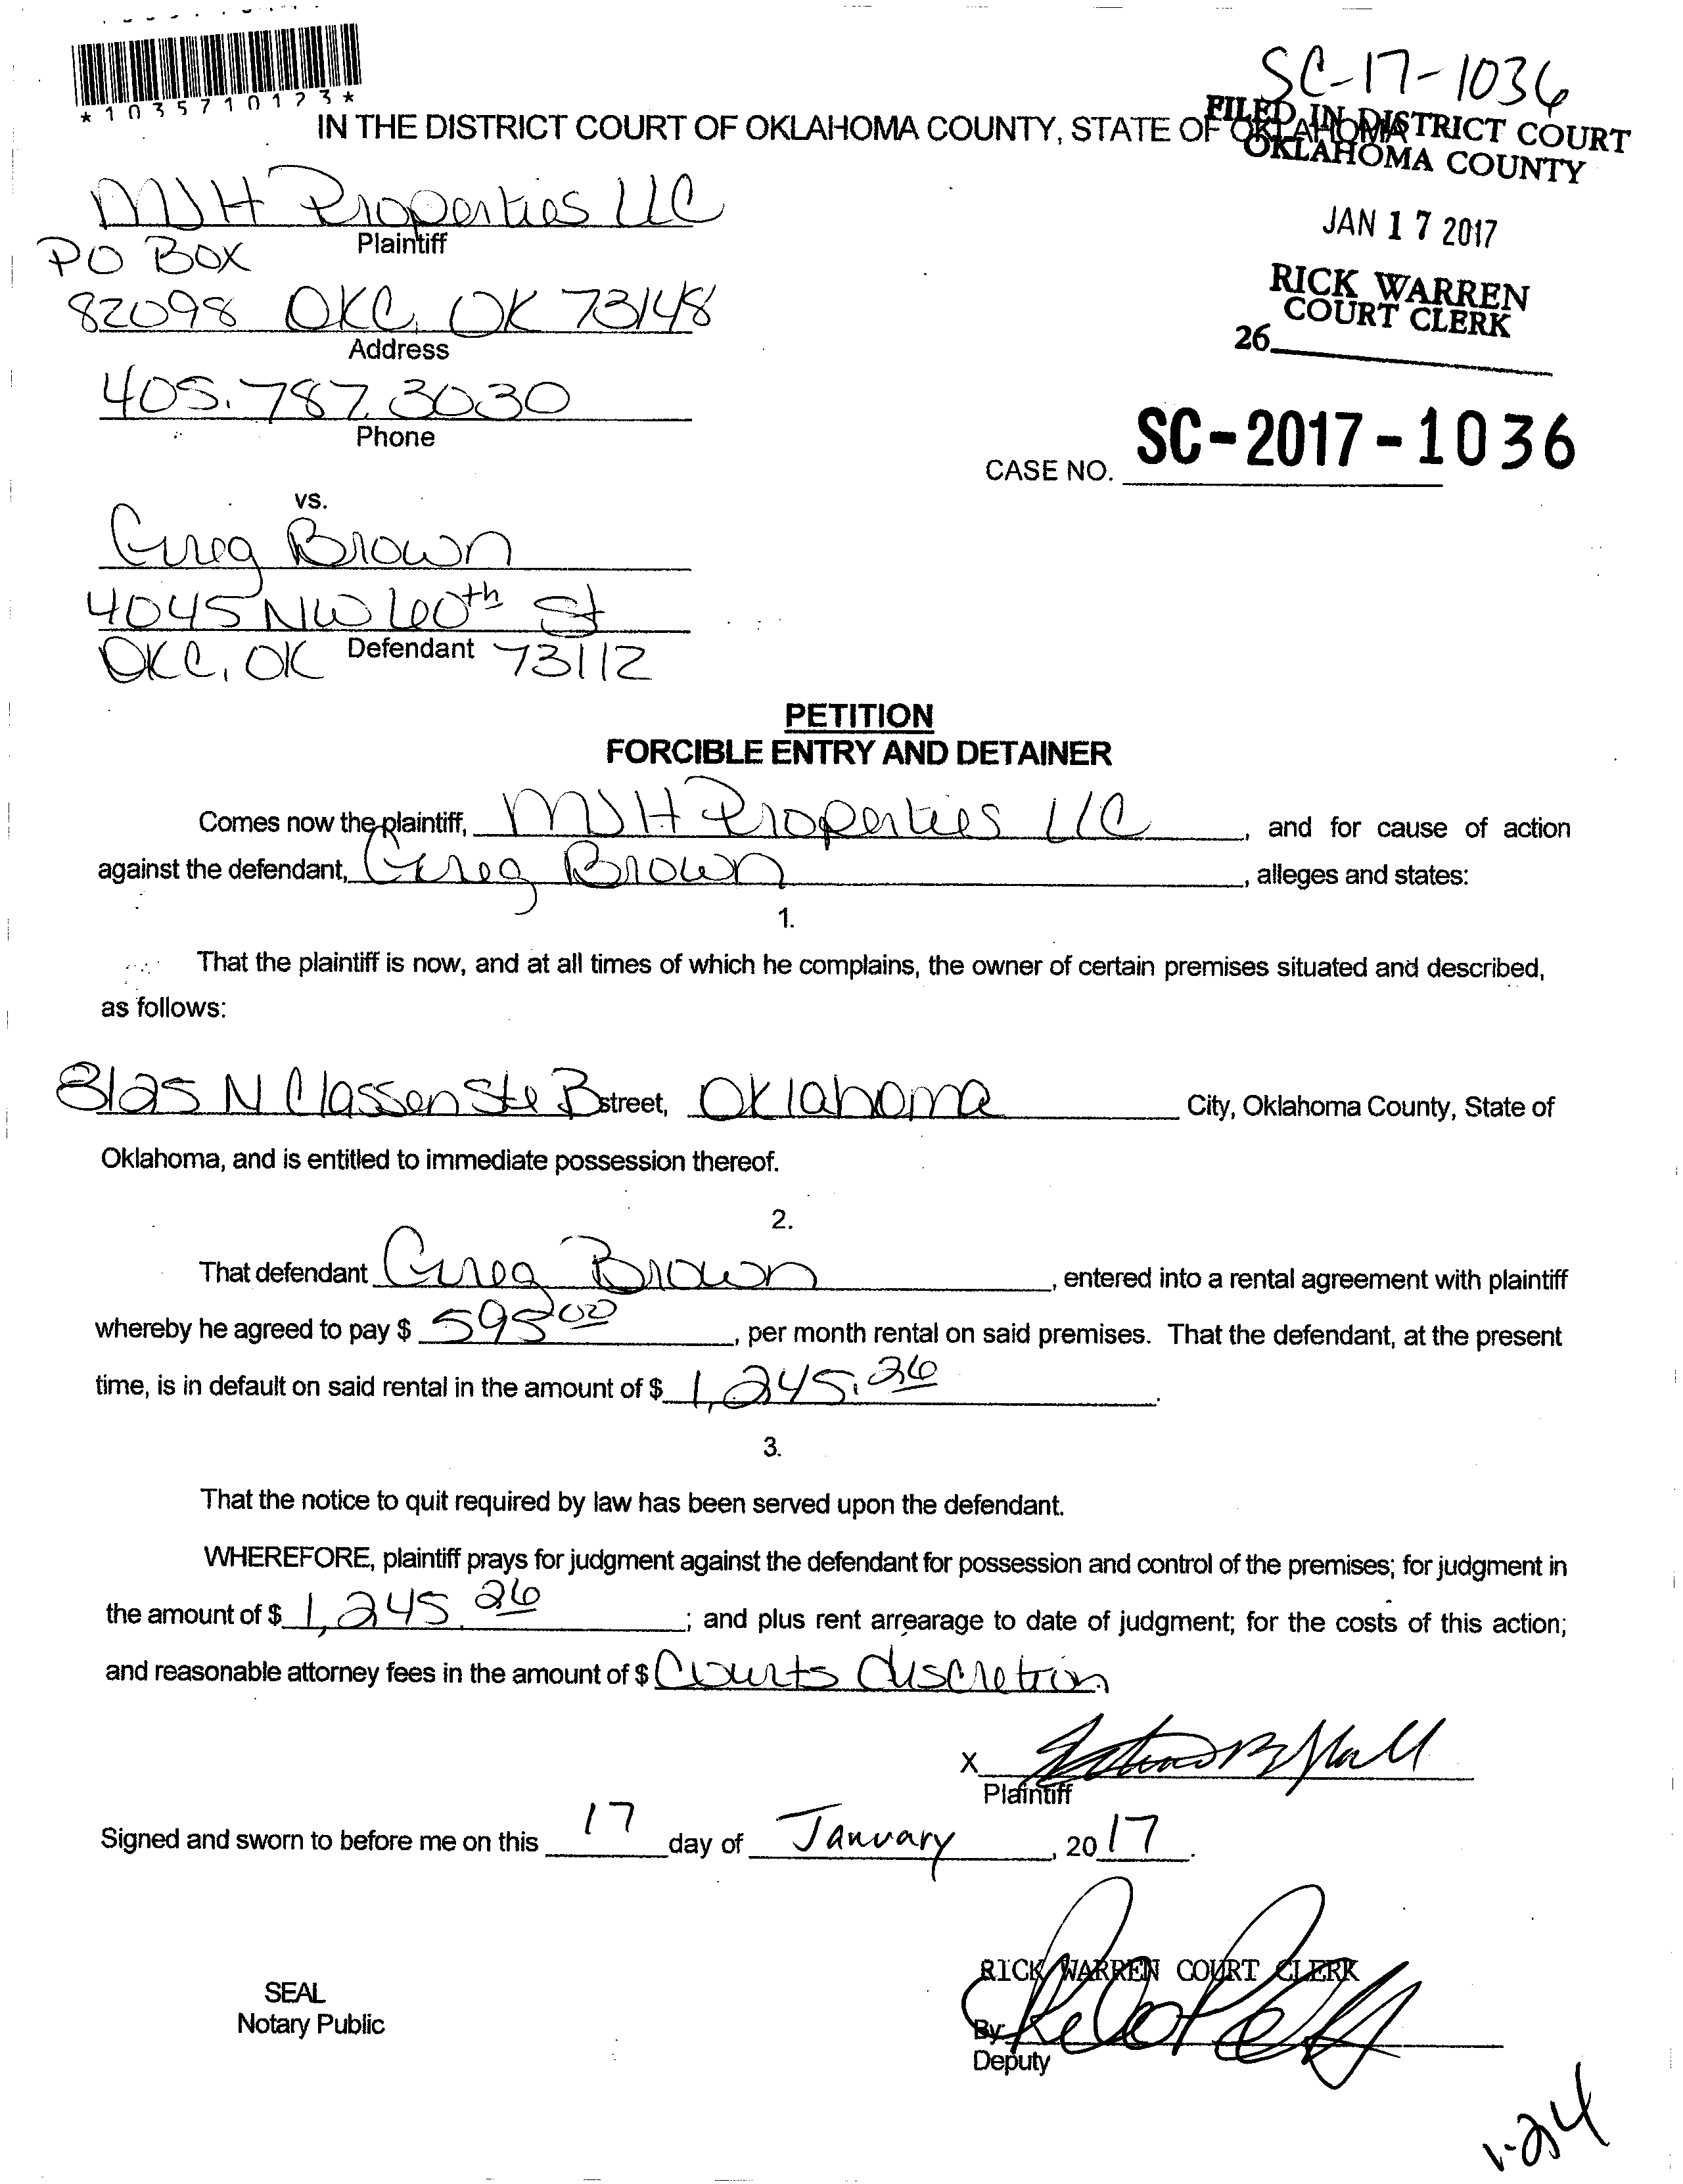 SC-17-1036
*1035710123*
IN THE DISTRICT COURT OF OKLAHOMA COUNTY, STATE OF OKLAHOMA
FILED IN DISTRICT COURT
OKLAHOMA COUNTY
JAN 17 2017
RICK WARREN
COURT CLERK
26
MJH Properties LLC
Plaintiff
PO BOX
82098 OKC, OK 73148
Address
405.787.3030
Phone
CASE NO. SC-2017-1036
vs.
Greg Brown
4045 NW 60th St
Defendant
OKC, OK 73112
PETITION
FORCIBLE ENTRY AND DETAINER
Comes now the plaintiff, MJH Properties LLC, and for cause of action
against the defendant, Greg Brown, alleges and states:
1.
That the plaintiff is now, and at all times of which he complains, the owner of certain premises situated and described,
as follows:
8125 N Classen Ste B street, Oklahoma City, Oklahoma County, State of
Oklahoma, and is entitled to immediate possession thereof.
2.
That defendant Greg Brown, entered into a rental agreement with plaintiff
whereby he agreed to pay $ 595.00, per month rental on said premises. That the defendant, at the present
time, is in default on said rental in the amount of $ 1,245.26.
3.
That the notice to quit required by law has been served upon the defendant.
WHEREFORE, plaintiff prays for judgment against the defendant for possession and control of the premises; for judgment in
the amount of $ 1,245.26; and plus rent arrearage to date of judgment; for the costs of this action;
and reasonable attorney fees in the amount of $ Courts discretion
X
Plaintiff
Signed and sworn to before me on this 17 day of January, 2017.
RICK WARREN COURT CLERK
SEAL
Notary Public
By
Deputy
1-24